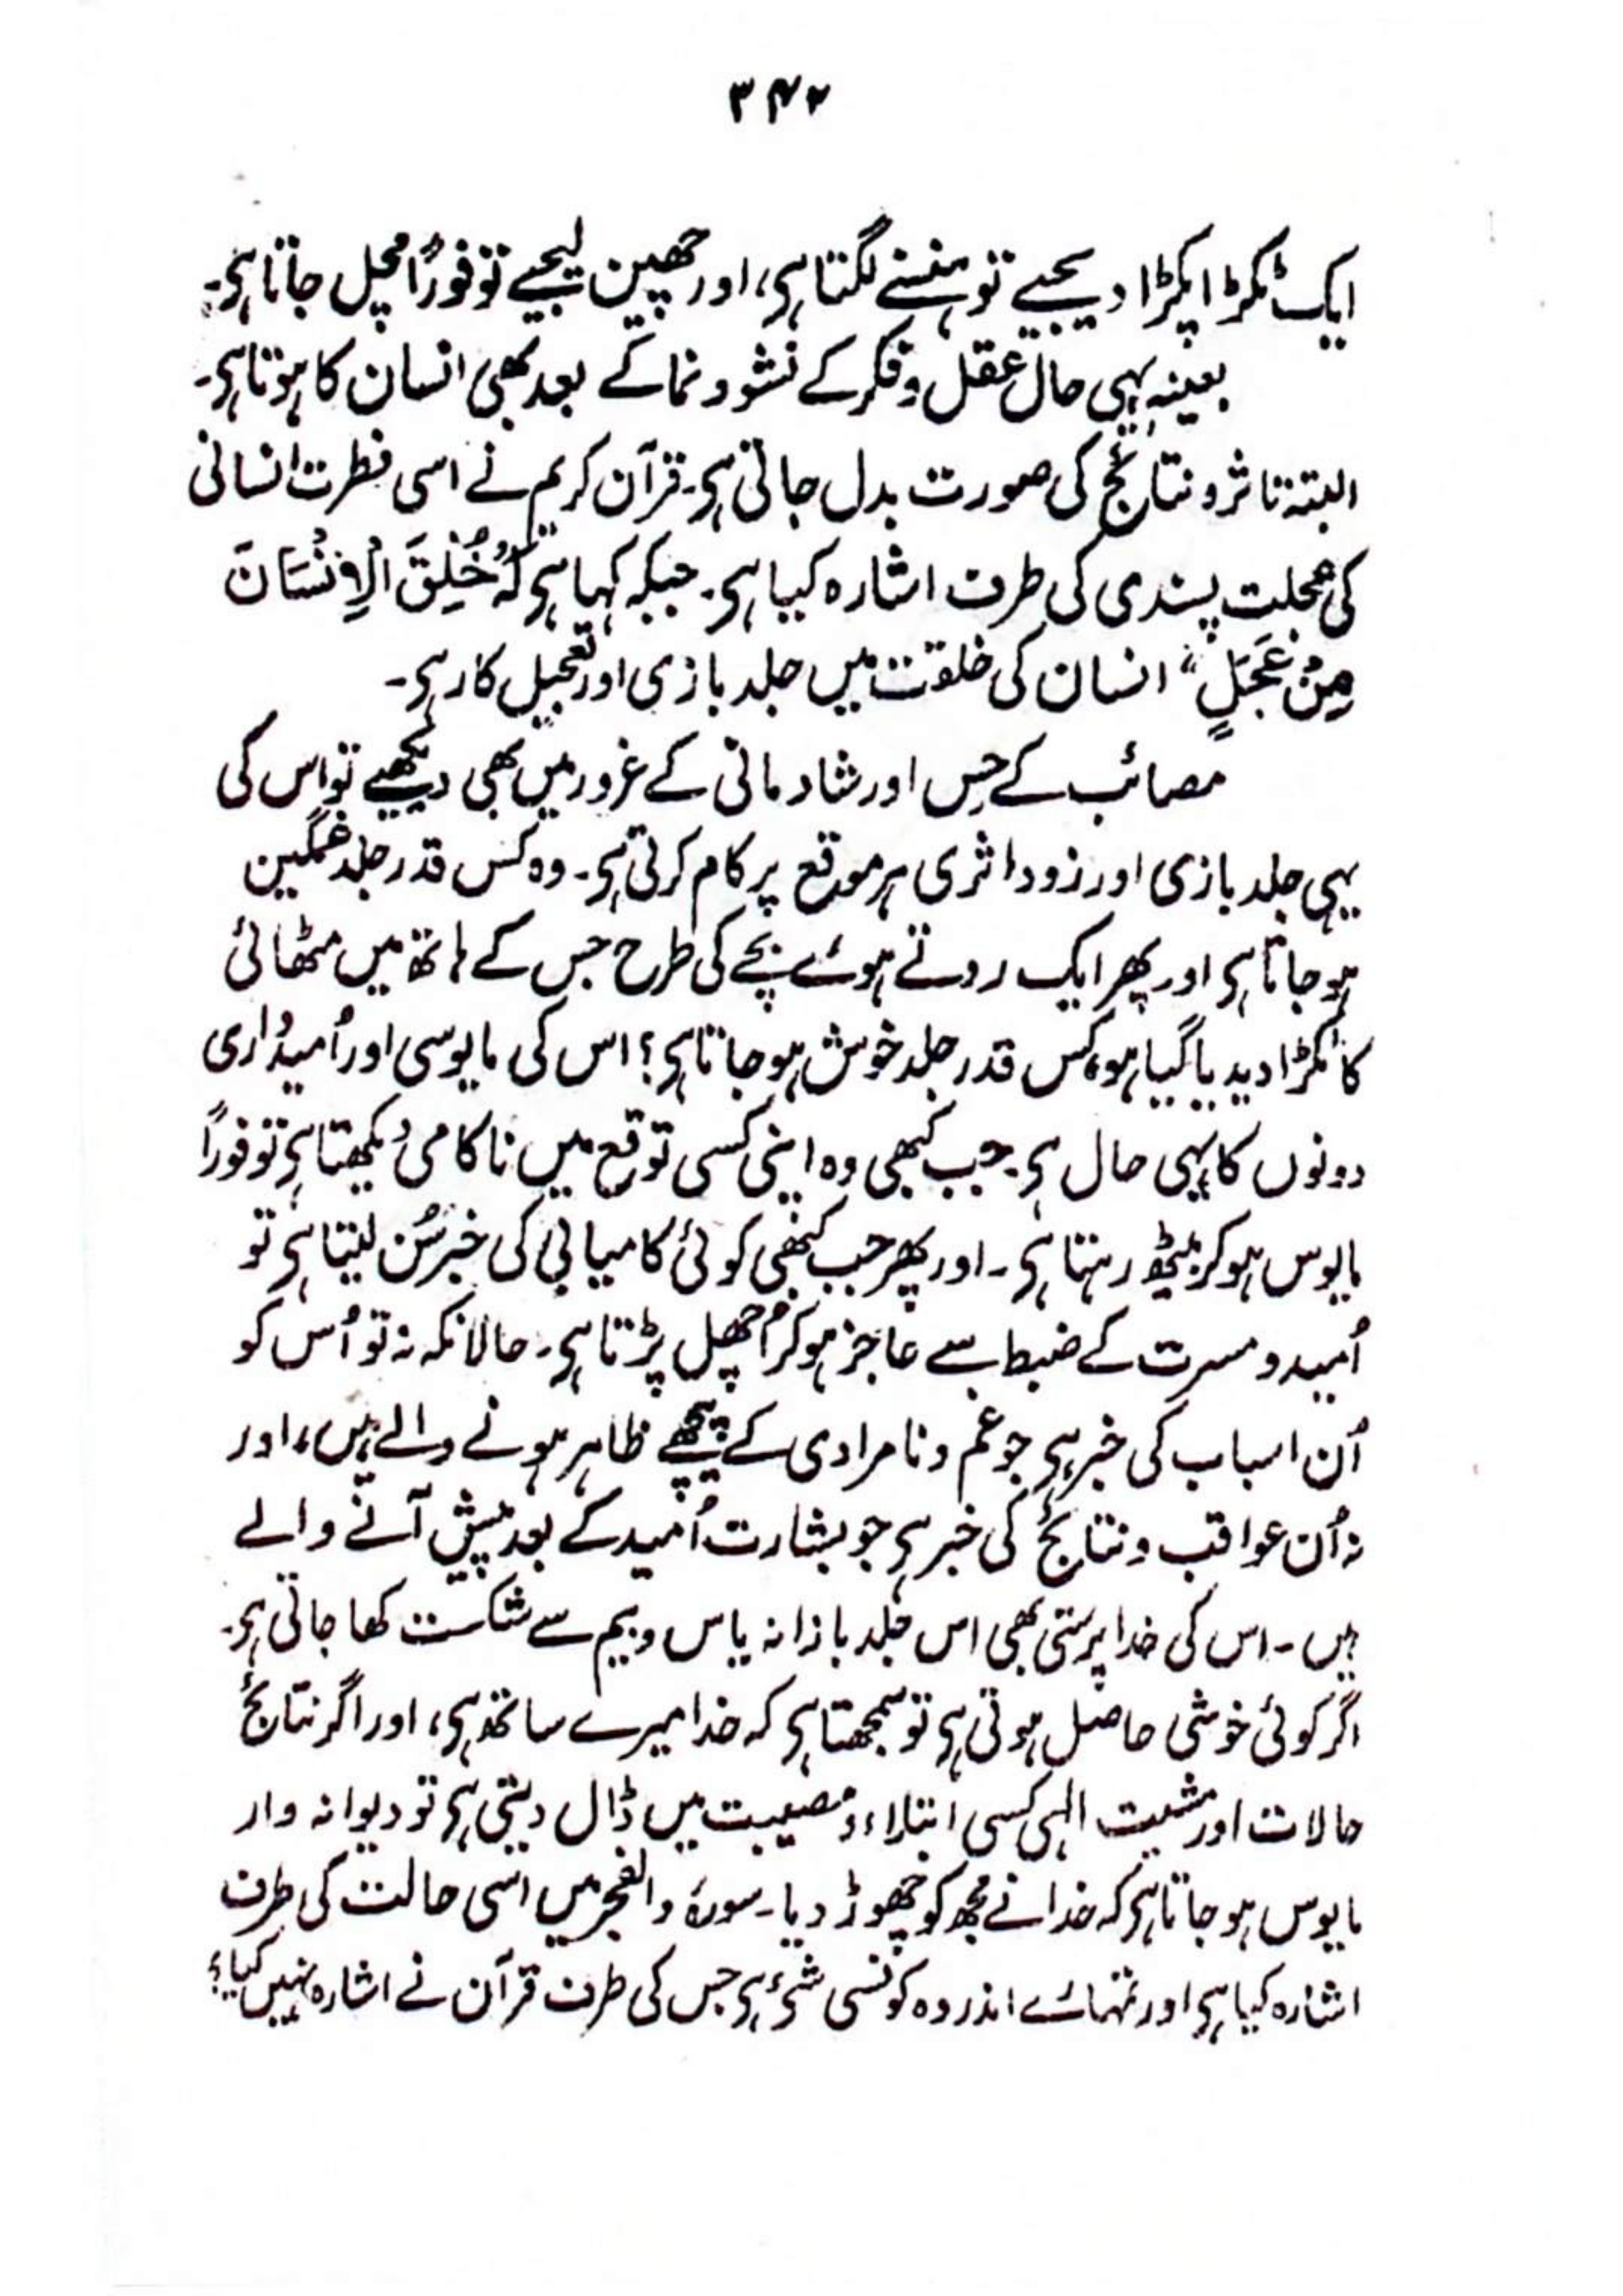 ۳۴۲
ایک ٹکڑا پکڑا دیجیے تو ہنسنے لگتا ہی، اور چھین لیجیے تو فوراً مچل جاتا ہی۔
بعینہٖ یہی حال عقل و فکر کے نشو و نما کے بعد بھی انسان کا ہوتا ہی۔
البتہ تاثر و نتائج کی صورت بدل جاتی ہی۔ قرآن کریم نے اسی فطرت انسانی
کی عجلت پسندی کی طرف اشارہ کیا ہی۔ جبکہ کہا ہی کہ "خُلِقَ الْاِنْسَانَ
مِنْ عَجَلٍ" انسان کی خلقت میں جلد بازی اور تعجیل کار ہی۔
مصائب کے حِس اور شادمانی کے غرور میں بھی دیکھیے تو اس کی
یہی جلد بازی اور زود اثری ہر موقع پر کام کرتی ہی۔ وہ کس قدر جلد غمگین
ہو جاتا ہی اور پھر ایک روتے ہوئے بچے کی طرح جس کے ہاتھ میں مٹھائی
کا ٹکڑا دیدیا گیا ہو، کس قدر جلد خوش ہو جاتا ہی؟ اس کی مایوسی اور اُمیدواری
دونوں کا یہی حال ہی۔ جب کبھی وہ اپنی کسی توقع میں ناکامی دیکھتا ہی تو فوراً
مایوس ہو کر بیٹھ رہتا ہی۔ اور پھر جب کبھی کوئی کامیابی کی خبر سُن لیتا ہی تو
اُمید و مسرت کے ضبط سے عاجز ہو کر اُچھل پڑتا ہی۔ حالانکہ نہ تو اُس کو
اُن اسباب کی خبر ہی جو غم و نامرادی کے پیچھے ظاہر ہونے والے ہیں، اور
نہ اُن عواقب و نتائج کی خبر ہی جو بشارت اُمید کے بعد پیش آنے والے
ہیں۔ اس کی خدا پرستی بھی اس جلد بازانہ یاس و بیم سے شکست کھا جاتی ہی۔
اگر کوئی خوشی حاصل ہوتی ہی تو سمجھتا ہی کہ خدا میرے ساتھ ہی، اور اگر نتائج
حالات اور مشیت الٰہی کسی ابتلاء و مصیبت میں ڈال دیتی ہی تو دیوانہ وار
مایوس ہو جاتا ہی کہ خدا نے مجھ کو چھوڑ دیا۔ سورۂ والفجر میں اسی حالت کی طرف
اشارہ کیا ہی اور تمہارے اندر وہ کونسی شئ ہی جس کی طرف قرآن نے اشارہ نہیں کیا؟